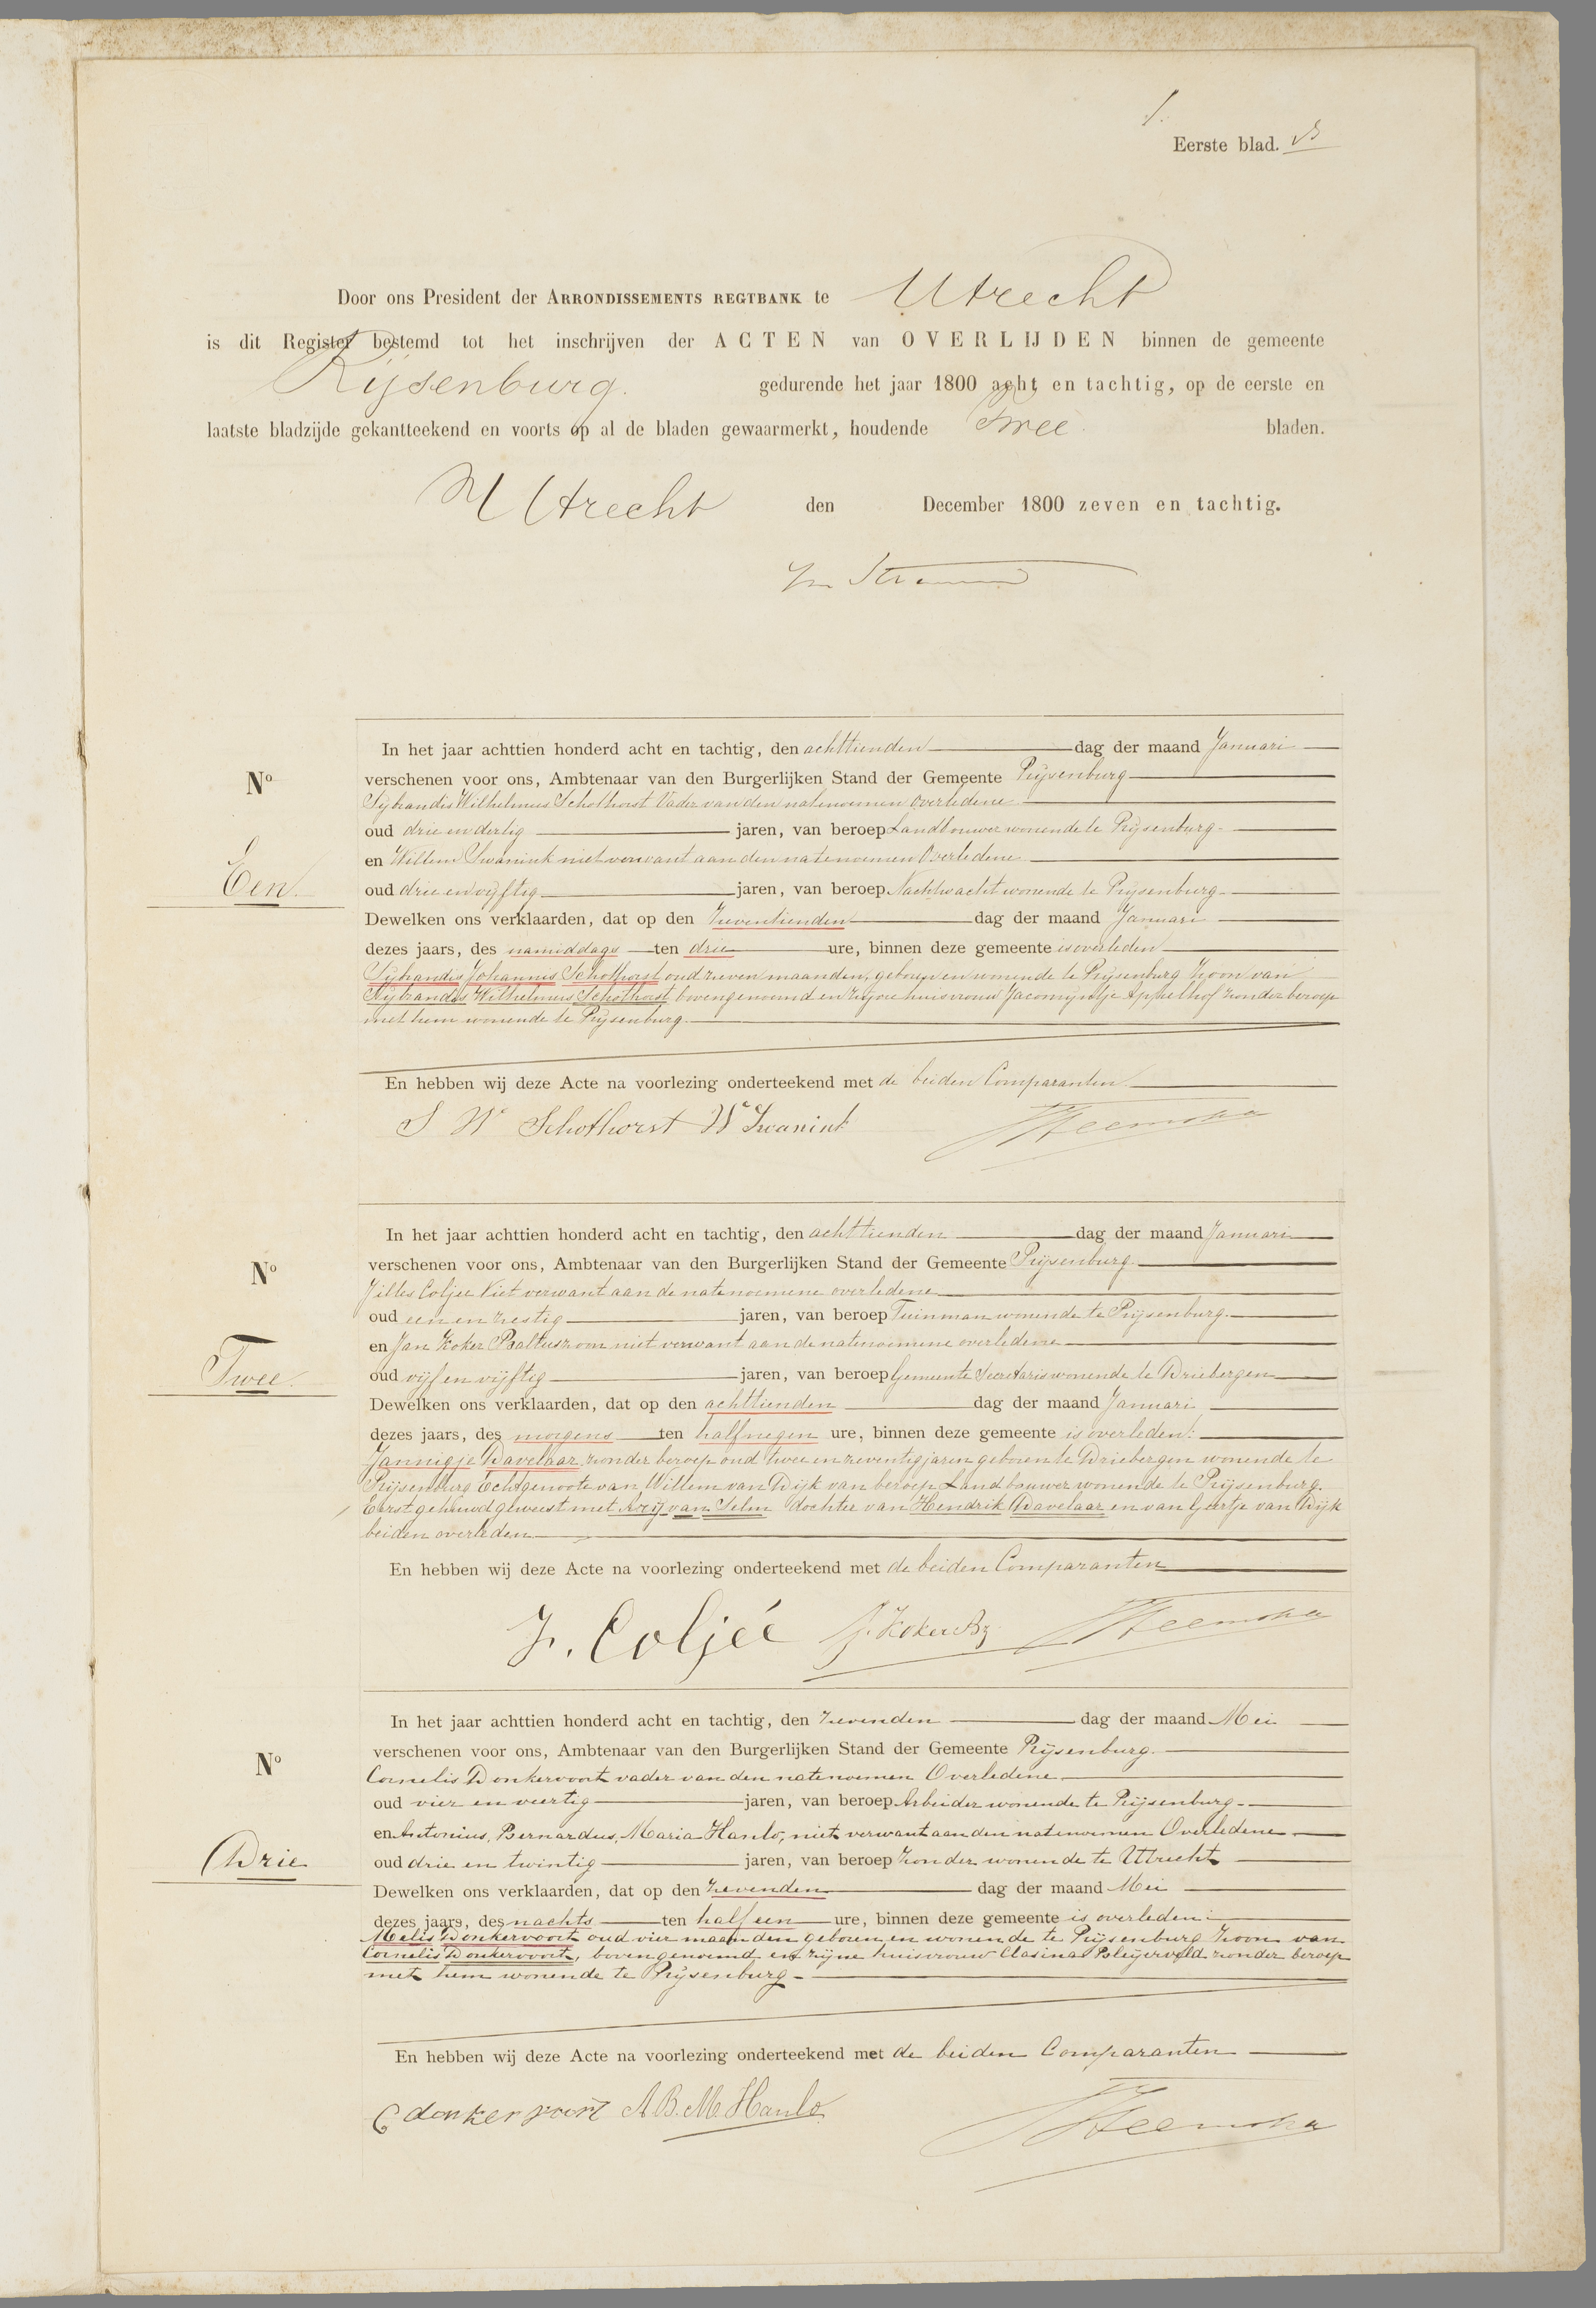 1.
Eerste blad.
Door ons President der ARRONDISSEMENTS REGTBANK te Utrecht
is dit Register bestemd tot het inschrijven der ACTEN van OVERLIJDEN binnen de gemeente
Rijsenburg. gedurende het jaar 1800 acht en tachtig, op de eerste en
laatste bladzijde gekantteekend en voorts op al de bladen gewaarmerkt, houdende Twee bladen.
Utrecht den December 1800 zeven en tachtig.
No
Een.
In het jaar achttien honderd acht en tachtig, den achttienden dag der maand Januari
verschenen voor ons, Ambtenaar van den Burgerlijken Stand der Gemeente Rijsenburg
Sijbrandis Wilhelmus Schothorst Vader van den natenoemen overledene
oud drie en dertig jaren, van beroep Landbouwer wonende te Rijsenburg
en Willem Swanink niet verwant aan den natenoemen Overledene
oud drie en vijftig jaren, van beroep Nachtwacht wonende te Rijsenburg
Dewelken ons verklaarden, dat op den Zeventienden dag der maand Januari
dezes jaars, des namiddags ten drie ure, binnen deze gemeente is overleden
Sijbrandis Johannis Schothorst oud zeven maanden, geboren en wonende te Rijsenburg Zoon van
Sijbrandis Wilhelmus Schothorst bovengenoemd en zijne huisvrouw Jacomijntje Appelhof zonder beroep
met hem wonende te Rijsenburg
En hebben wij deze Acte na voorlezing onderteekend met de beiden Comparanten
S W Schothorst W Swanink Heemstra
No
Twee.
In het jaar achttien honderd acht en tachtig, den achttienden dag der maand Januari
verschenen voor ons, Ambtenaar van den Burgerlijken Stand der Gemeente Rijsenburg
Jilles Coljee Niet verwant aan de natenoemene overledene
oud een en zestig jaren, van beroep Tuinman wonende te Rijsenburg
en Jan Koker Baltuszoon niet verwant aan de natenoemene overledene
oud vijf en vijftig jaren, van beroep Gemeente Secretaris wonende te Driebergen
Dewelken ons verklaarden, dat op den achttienden dag der maand Januari
dezes jaars, des morgens ten half negen ure, binnen deze gemeente is overleden:
Jannigje Davelaar zonder beroep oud twee en zeventig jaren geboren te Driebergen wonende te
Rijsenburg Echtgenoote van Willem van Dijk van beroep Landbouwer wonende te Rijsenburg.
Eerst gehuwd geweest met Arij van Selm dochter van Hendrik Davelaar en van Geertje van Dijk
beiden overleden
En hebben wij deze Acte na voorlezing onderteekend met de beiden Comparanten
J. Coljée J. Koker Bz Heemstra
No
Drie
In het jaar achttien honderd acht en tachtig, den Zevenden dag der maand Mei
verschenen voor ons, Ambtenaar van den Burgerlijken Stand der Gemeente Rijsenburg.
Cornelis Donkervoort vader van den natenoemen Overledene
oud vier en veertig jaren, van beroep Arbeider wonende te Rijsenburg
en Antonius, Bernardus, Maria Hanlo, niet verwant aan den natenoemen Overledene
oud drie en twintig jaren, van beroep Zonder wonende te Utrecht
Dewelken ons verklaarden, dat op den Zevenden dag der maand Mei
dezes jaars, des nachts ten half een ure, binnen deze gemeente is overleden:
Melis Donkervoort oud vier maanden geboren en wonende te Rijsenburg Zoon van
Cornelis Donkervoort, bovengenoemd en zijne huisvrouw Clasina Bleijerveld zonder beroep
met hem wonende te Rijsenburg
En hebben wij deze Acte na voorlezing onderteekend met de beiden Comparanten
C donkervoort A.B.M. Hanlo Heemstra